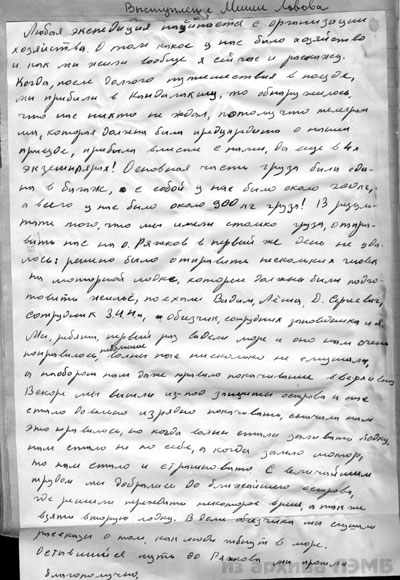 Выступление Миши Львова
Любая экспедиция начинается с организации
хозяйства. О том какое у нас было хозяйство
и как мы жили вообще я сейчас и расскажу.
Когда, после долгого путешествия в поезде,
мы прибыли в Кандалакшу, то обнаружилось,
что нас никто не ждал, потому что телеграм
ма, которая должна была предупредить о нашем
приезде, прибыла вместе с нами, да еще в 4х
экземплярах! Основная часть груза была сда-
на в багаж, с собой у нас было около 200 кг,
а всего у нас было около 900 кг груза! В резуль-
тате того, что мы имели столько груза, отпра-
вить нас на о. Ряжков в первый же день не уда-
лось: решено было отправить нескольких человек
на моторной лодке, которые должны были подго-
товить жильё, поехали Вадим, Лёша, Д. Сергеевич,
сотрудник и обьезчик, сотрудник заповедника и я.
Мы, ребята, первый раз видели море и оно нам очень
понравилось, волны нас нисколько не смущали,
а наоборот нам даже нравилось покачивание вверх и вниз
Вскоре мы вышли из-под защиты острова и нас
стало довольно изрядно покачивать, сначала нам
это нравилось, но когда волны стали заливать лодку,
нам стало не по себе, а когда залило мотор,
то нам стало и страшновато. С величайшим
трудом мы добрались до ближайшего острова,
где решили переждать некоторое время, а также
взять вторую лодку. В доме обьезчика мы слушали
рассказы о том, как люди гибнут в море.
Оставшийся путь до Ряжкова мы прошли
благополучно.
из архива ПЭМБ